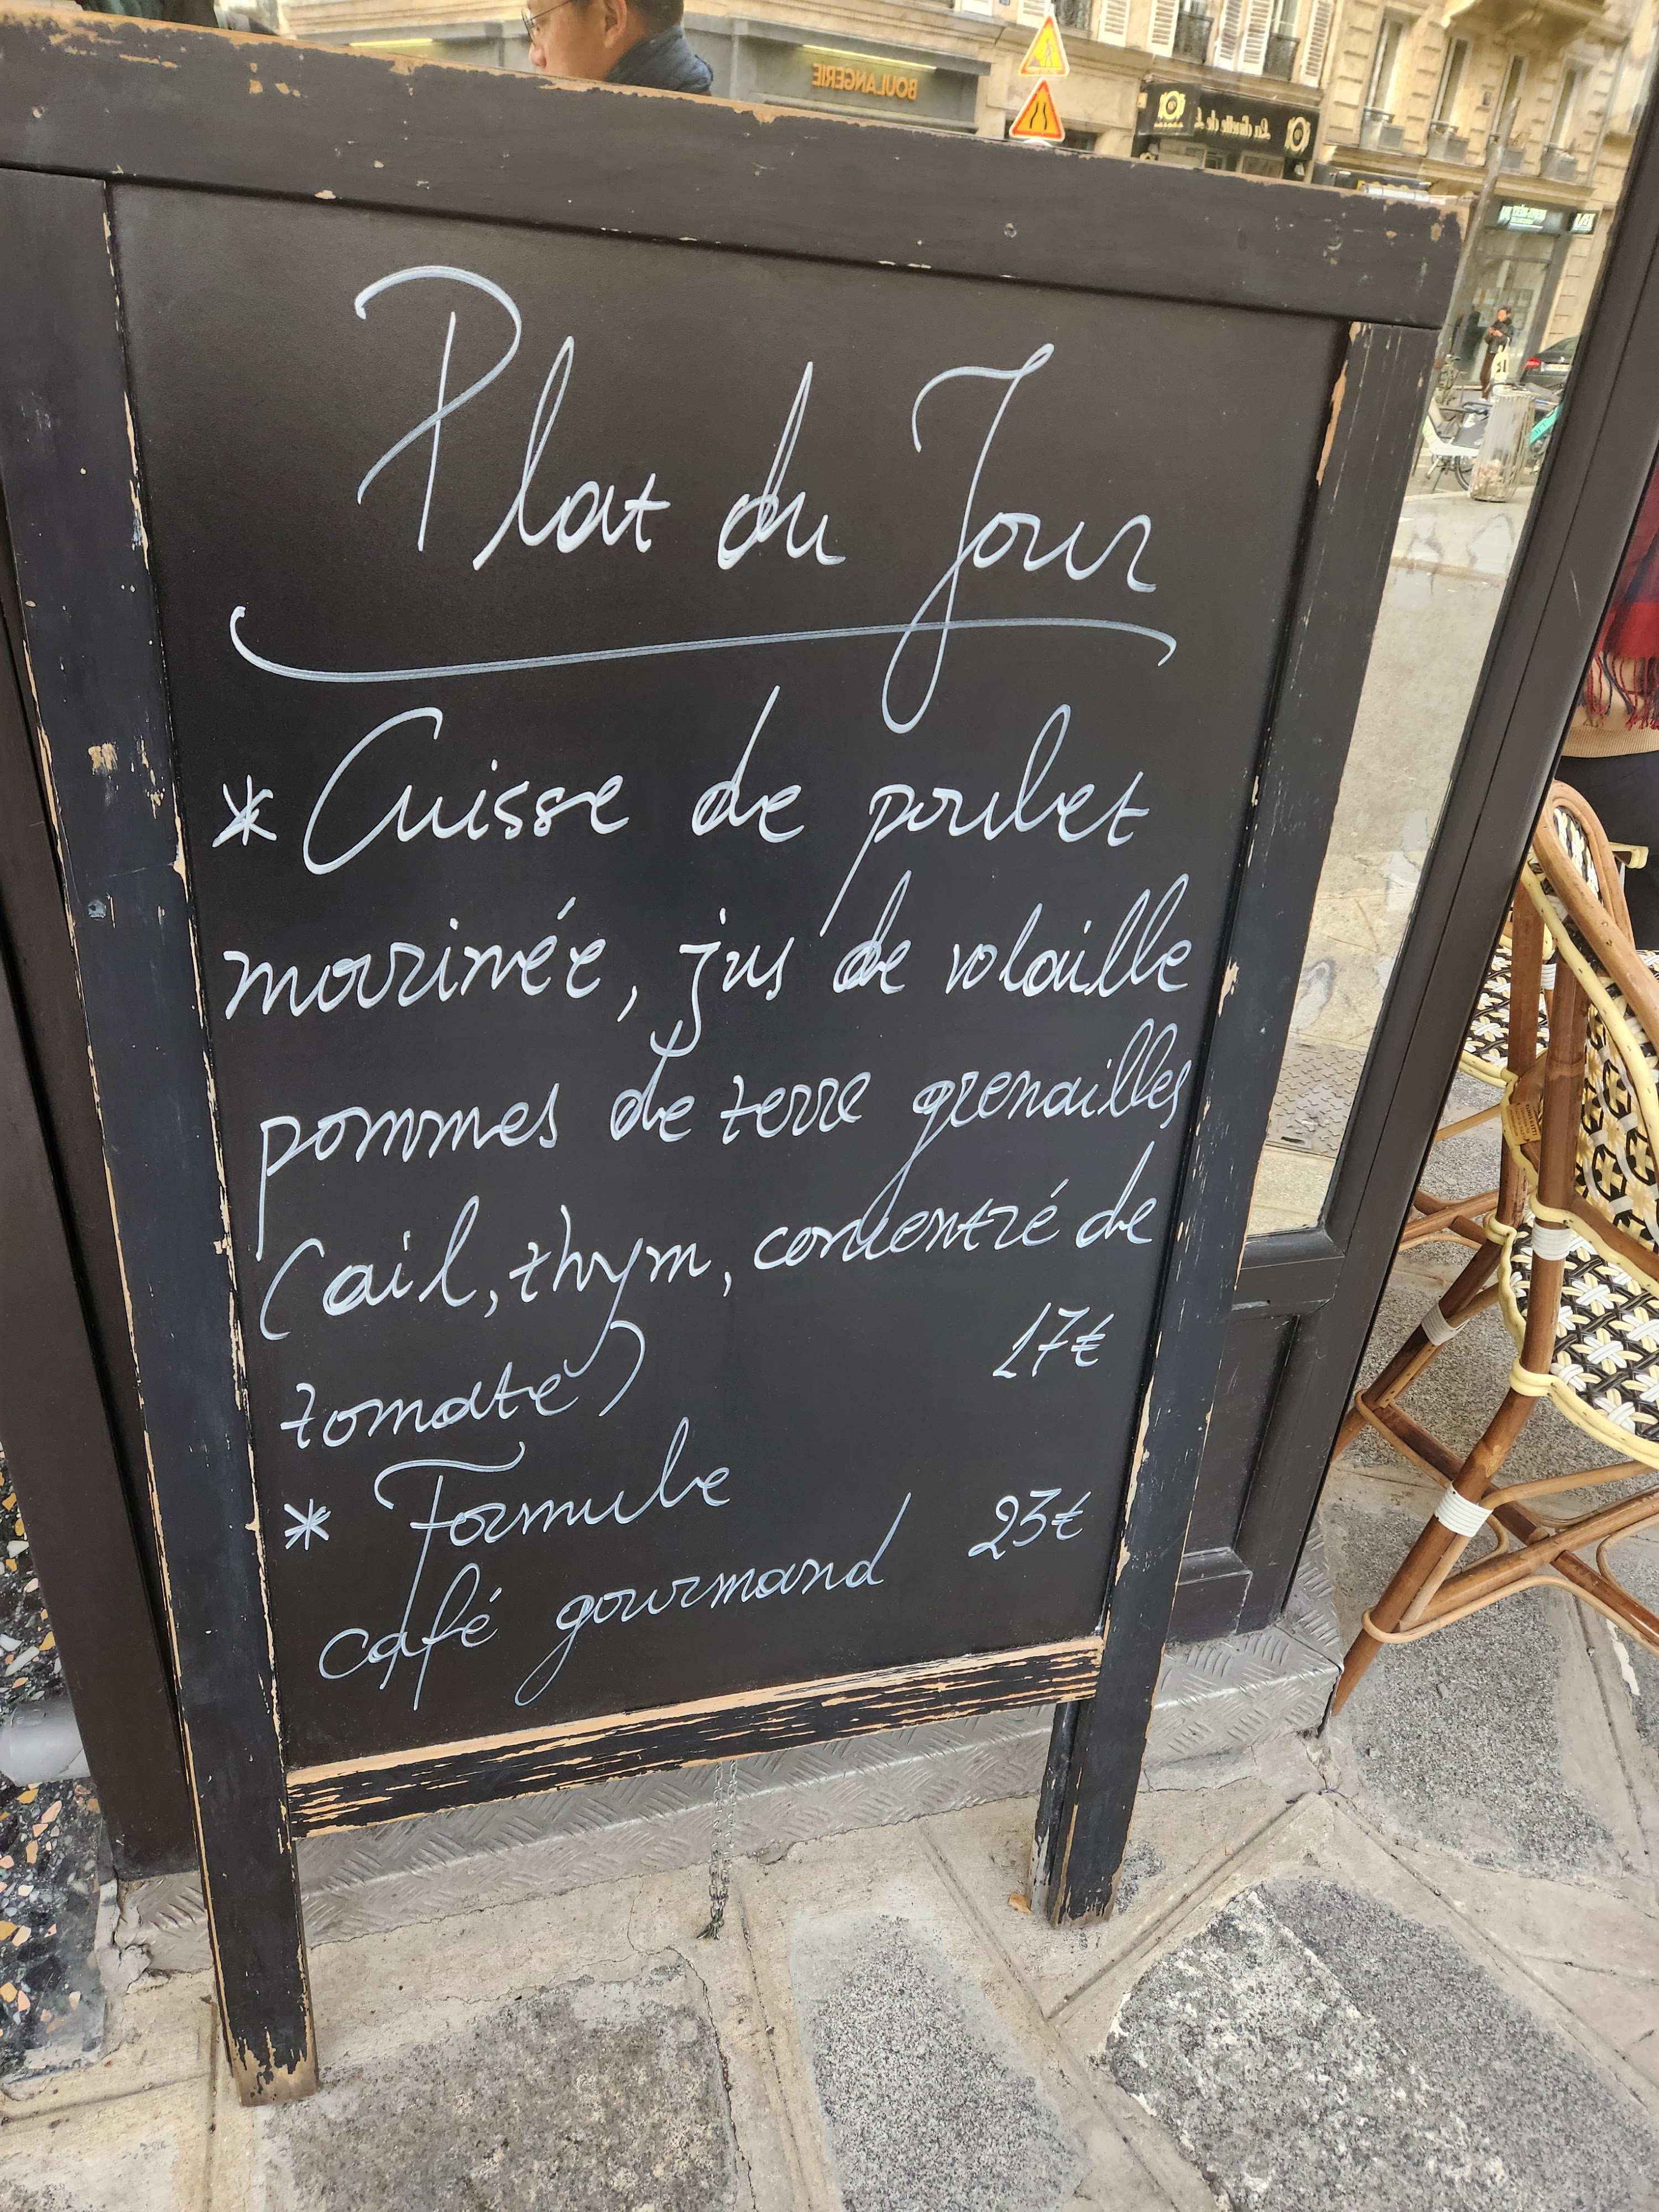 BOULANGERIE
Plat du Jour
* Cuisse de poulet
marinée, jus de volaille
pommes de terre grenailles
(ail, thym, concentré de
tomate)
17€
* Formule
café gourmand
23€